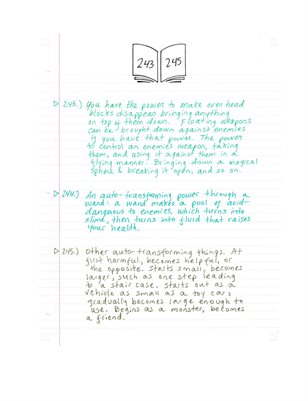 243 245
▷ 243.) You have the power to make over head
blocks disappear bringing anything
on top of them down. Floating weapons
can be brought down against enemies
if you have that power. The power
to control an enemies weapon, taking
them, and using it against them in a
flying manner. Bringing down a magical
sphere & breaking it open, and so on.
▷ 244.) An auto-transforming power through a
wand: a wand makes a pool of acid-
dangerous to enemies, which turns into
slime, then turns into fluid that raises
your health.
▷ 245.) Other auto-transforming things. At
first harmful, becomes helpful, or
the opposite. Starts small, becomes
larger, such as one step leading
to a stair case. Starts out as a
vehicle as small as a toy car,
gradually becomes large enough to
use. Begins as a monster, becomes
a friend.